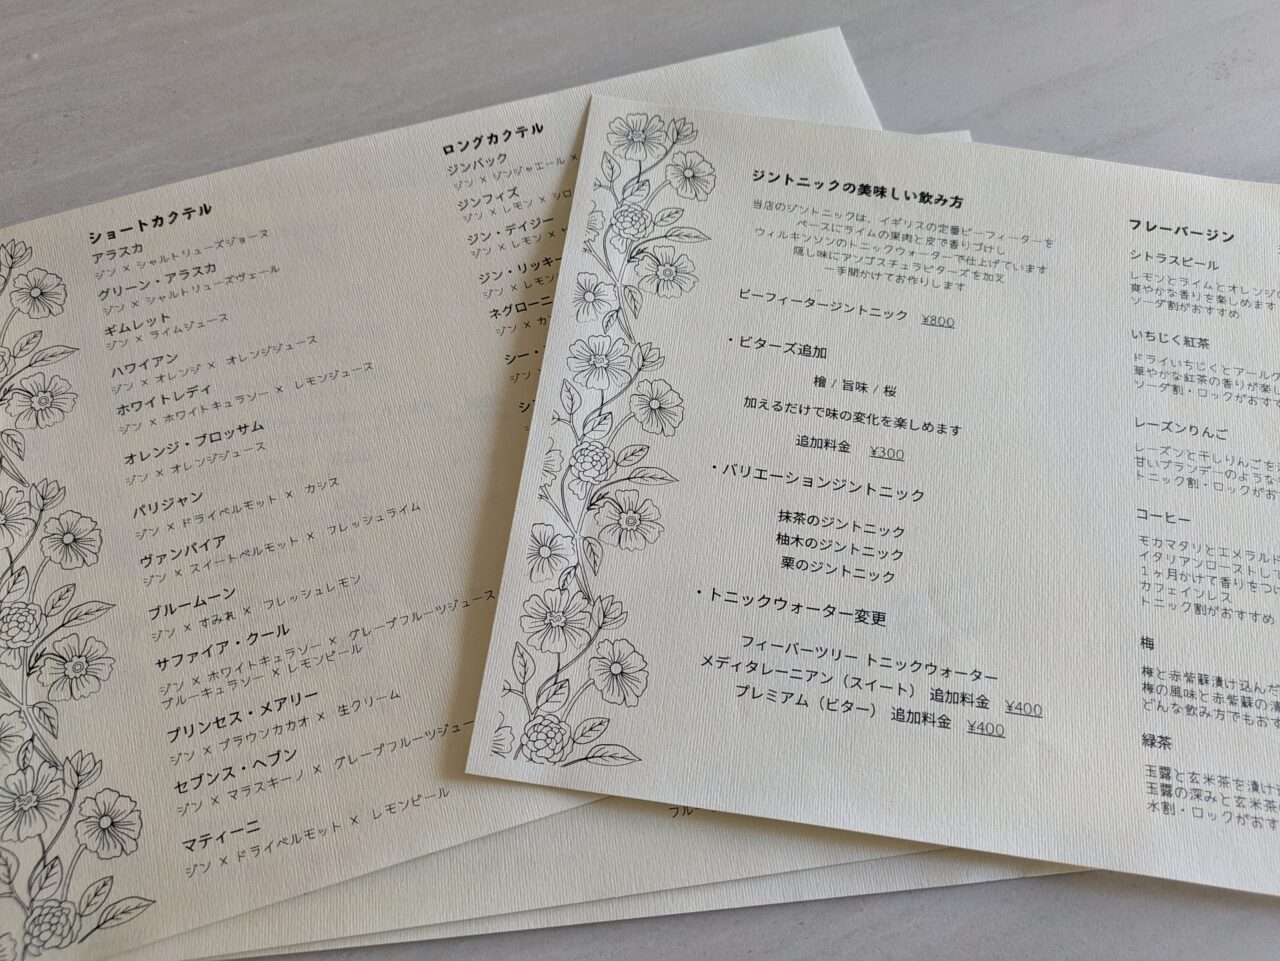 ショートカクテル
アラスカ
ジン × シャルトリューズジョーヌ
グリーン・アラスカ
ジン × シャルトリューズヴェール
ギムレット
ジン × ライムジュース
ハワイアン
ジン × オレンジ × オレンジジュース
ホワイトレディ
ジン × ホワイトキュラソー × レモンジュース
オレンジ・ブロッサム
ジン × オレンジジュース
パリジャン
ジン × ドライベルモット × カシス
ヴァンパイア
ジン × スイートベルモット × フレッシュライム
ブルームーン
ジン × すみれ × フレッシュレモン
サファイア・クール
ジン × ホワイトキュラソー × グレープフルーツジュース
ブルーキュラソー × レモンピール
プリンセス・メアリー
ジン × ブラウンカカオ × 生クリーム
セブンス・ヘブン
ジン × マラスキーノ × グレープフルーツジュー
マティーニ
ジン × ドライベルモット × レモンピール
ロングカクテル
ジンバック
ジン × ジンジャエール ×
ジンフィズ
ジン × レモン × シロ
ジン・デイジー
ジン × レモン ×
ジン・リッキー
ジン × レモン
ネグローニ
ジン × カ
シー・
ジン ×
シン
フル
ジントニックの美味しい飲み方
当店のジントニックは、イギリスの定番ビーフィーターを
ベースにライムの果肉と皮で香りづけし
ウィルキンソンのトニックウォーターで仕上げています
隠し味にアンゴスチュラビターズを加え
一手間かけてお作りします
ビーフィータージントニック ¥800
・ビターズ追加
檜 / 旨味 / 桜
加えるだけで味の変化を楽しめます
追加料金 ¥300
・バリエーションジントニック
抹茶のジントニック
柚木のジントニック
栗のジントニック
・トニックウォーター変更
フィーバーツリー トニックウォーター
メディタレーニアン（スイート） 追加料金 ¥400
プレミアム（ビター） 追加料金 ¥400
フレーバージン
シトラスピール
レモンとライムとオレンジ
爽やかな香りを楽しめます
ソーダ割がおすすめ
いちじく紅茶
ドライいちじくとアールグ
華やかな紅茶の香りが楽し
ソーダ割・ロックがおすす
レーズンりんご
レーズンと干しりんごを
甘いブランデーのような
トニック割・ロックがお
コーヒー
モカマタリとエメラルド
イタリアンローストして
1ヶ月かけて香りをつけ
カフェインレス
トニック割がおすすめ
梅
梅と赤紫蘇漬け込んだ
梅の風味と赤紫蘇の清
どんな飲み方でもおす
緑茶
玉露と玄米茶を漬け
玉露の深みと玄米茶
水割・ロックがおす